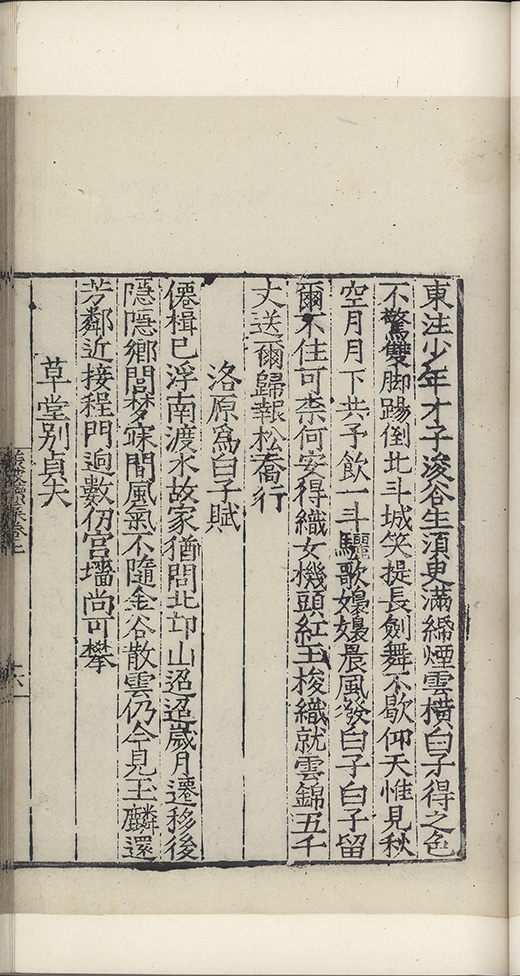 東注少年才子浚谷生須臾滿綈煙雲橫白子得之色
不驚雙脚踢倒北斗城笑提長劍舞不歇仰天惟見秋
空月月下共予飲一斗驪歌嫋嫋晨風發白子白子留
爾不住可柰何安得織女機頭紅玉梭織就雲錦五千
丈送爾歸報松喬行
洛原爲白子賦
僊楫已浮南渡水故家猶問北邙山迢迢歲月遷移後
隱隱鄉閭夢寐間風氣不隨金谷散雲仍今見玉麟還
芳鄰近接程門逈數仞宮墻尚可攀
草堂别貞夫
六